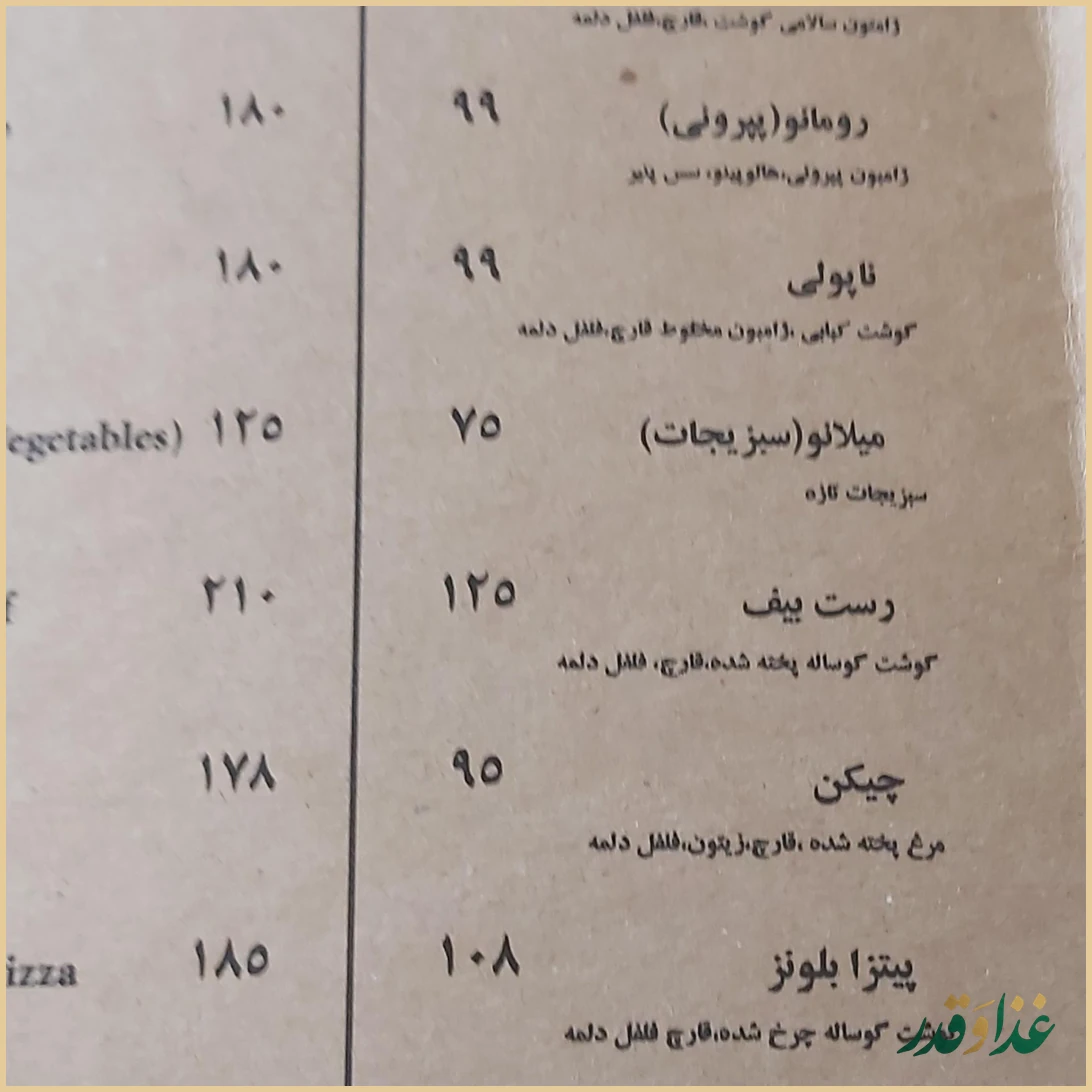 ژامبون سالامی گوشت ،قارچ،فلفل دلمه
رومانو(پپرونی) ۹۹ ۱۸۰
ژامبون پپرونی،هالوپینو، سس پایر
ناپولی ۹۹ ۱۸۰
گوشت کبابی ،ژامبون مخلوط قارچ،فلفل دلمه
میلانو(سبزیجات) ۷۵ ۱۲۵ egetables)
سبزیجات تازه
رست بیف ۱۲۵ ۲۱۰ f
گوشت گوساله پخته شده،قارچ، فلفل دلمه
چیکن ۹۵ ۱۷۸
مرغ پخته شده ،قارچ،زیتون،فلفل دلمه
پیتزا بلونز ۱۰۸ ۱۸۵ izza
گوشت گوساله چرخ شده،قارچ فلفل دلمه
غذا وَ قدر